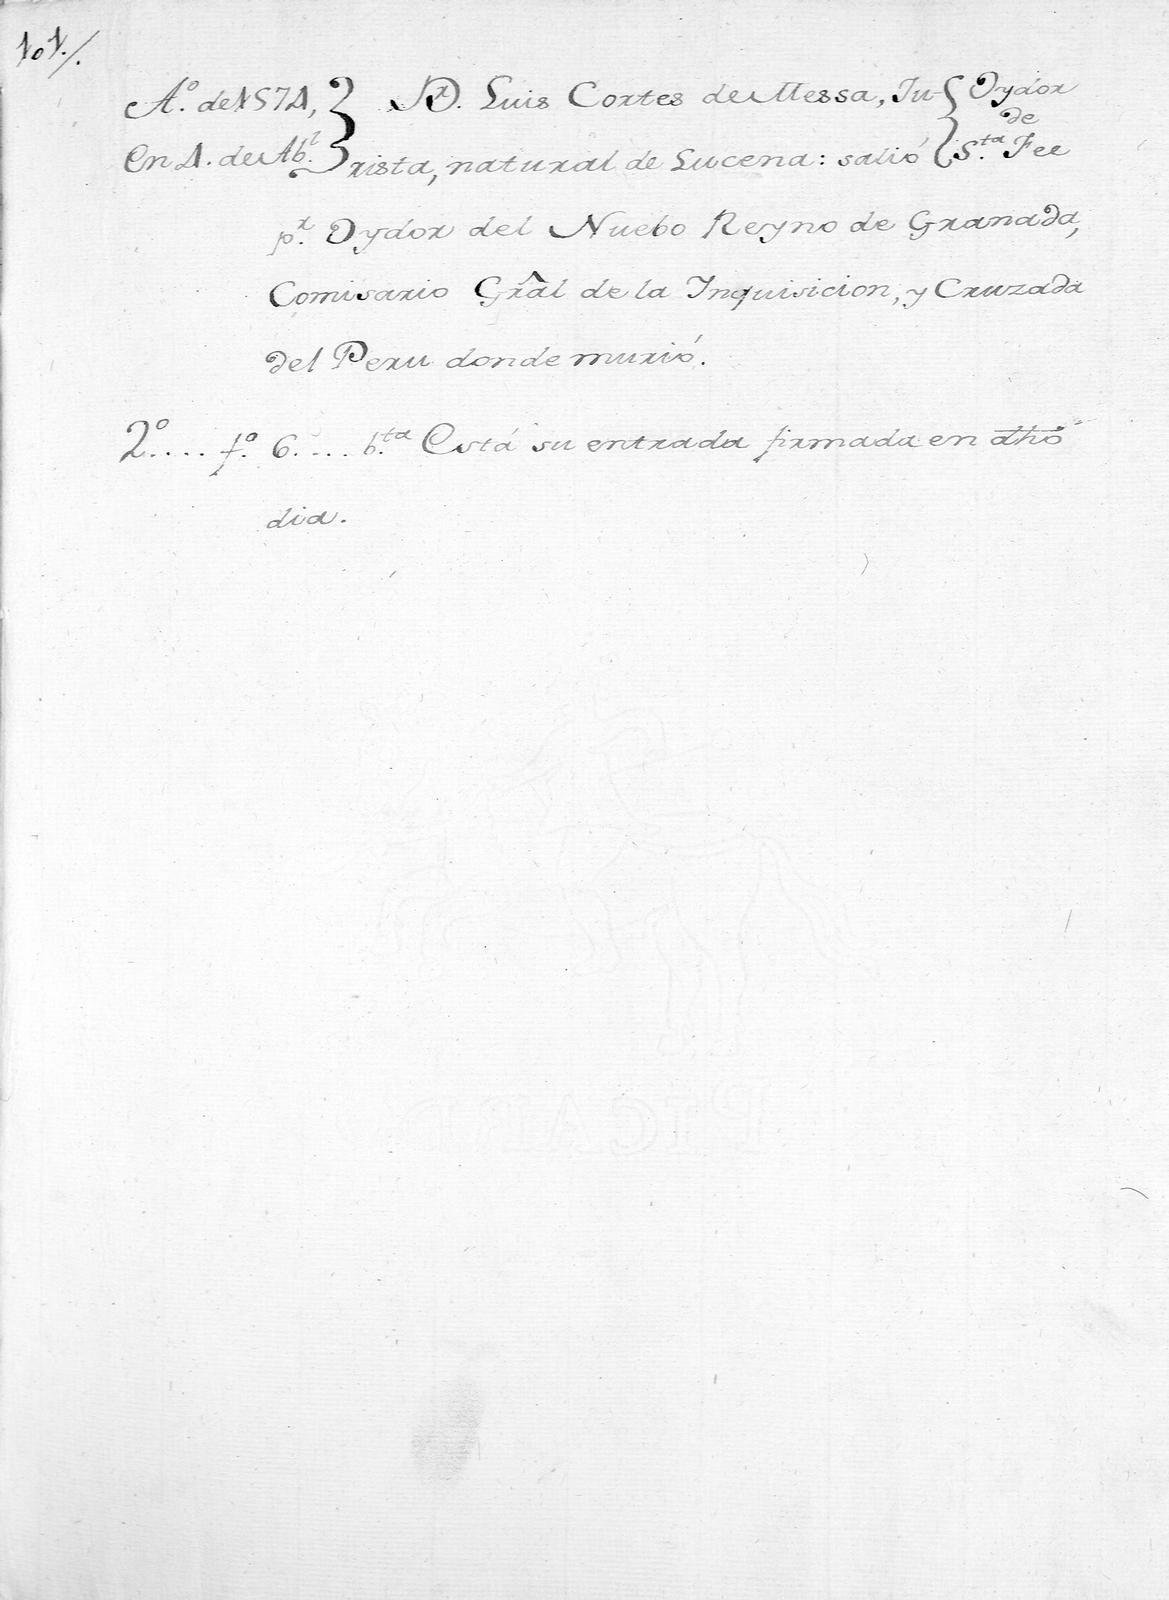 101./.
A.º de 1574,
en 4. de Ab.l
Sr. D. Luis Cortes de Messa, Ju-
rista, natural de Lucena: salió
Oydor
de
S.ta Fee
p.r Oydor del Nuebo Reyno de Granada,
Comisario Grâl de la Inquisicion, y Cruzada
del Peru donde murió.
2º.... f.º 6.... b.ta Está su entrada firmada en dhō
dia.